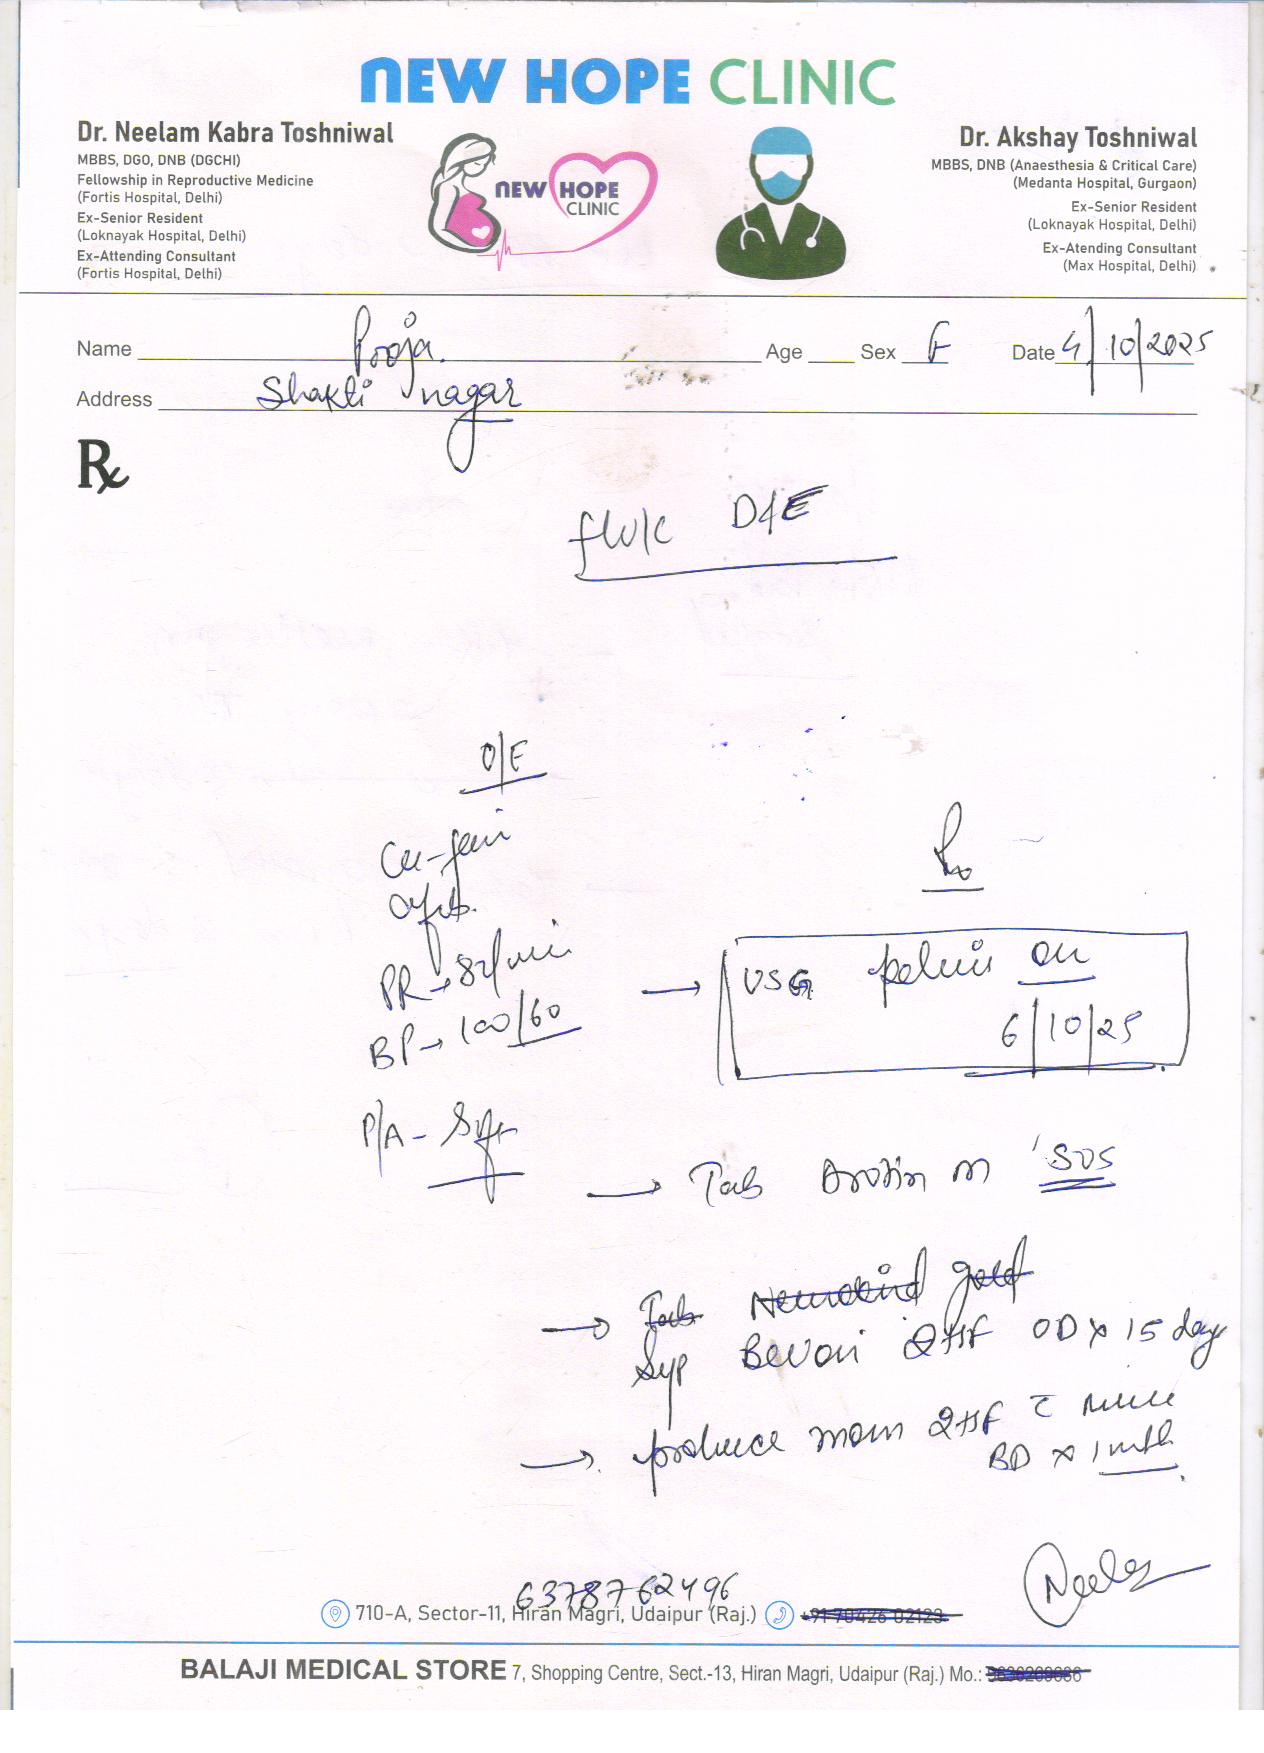 NEW HOPE CLINIC
Dr. Neelam Kabra Toshniwal
MBBS, DGO, DNB (DGCHI)
Fellowship in Reproductive Medicine
(Fortis Hospital, Delhi)
Ex-Senior Resident
(Loknayak Hospital, Delhi)
Ex-Attending Consultant
(Fortis Hospital, Delhi)
NEW HOPE
CLINIC
Dr. Akshay Toshniwal
MBBS, DNB (Anaesthesia & Critical Care)
(Medanta Hospital, Gurgaon)
Ex-Senior Resident
(Loknayak Hospital, Delhi)
Ex-Atending Consultant
(Max Hospital, Delhi)
Name Pooja Age Sex F Date 4/10/2025
Address Shakti nagar
Rx
f/u/c D&E
O/E
PR → 82/min
BP → 100/60
P/A - Soft
Rx
→ USG pelvis on
6/10/25
→ Tab M 'SOS'
→ Tab gold
Syp 2tsf OD x 15 days
→ produce mom 2tsf c
BD x 1 mth
Neelam
6378762496
710-A, Sector-11, Hiran Magri, Udaipur (Raj.) +91 70426 02123
BALAJI MEDICAL STORE 7, Shopping Centre, Sect.-13, Hiran Magri, Udaipur (Raj.) Mo.: